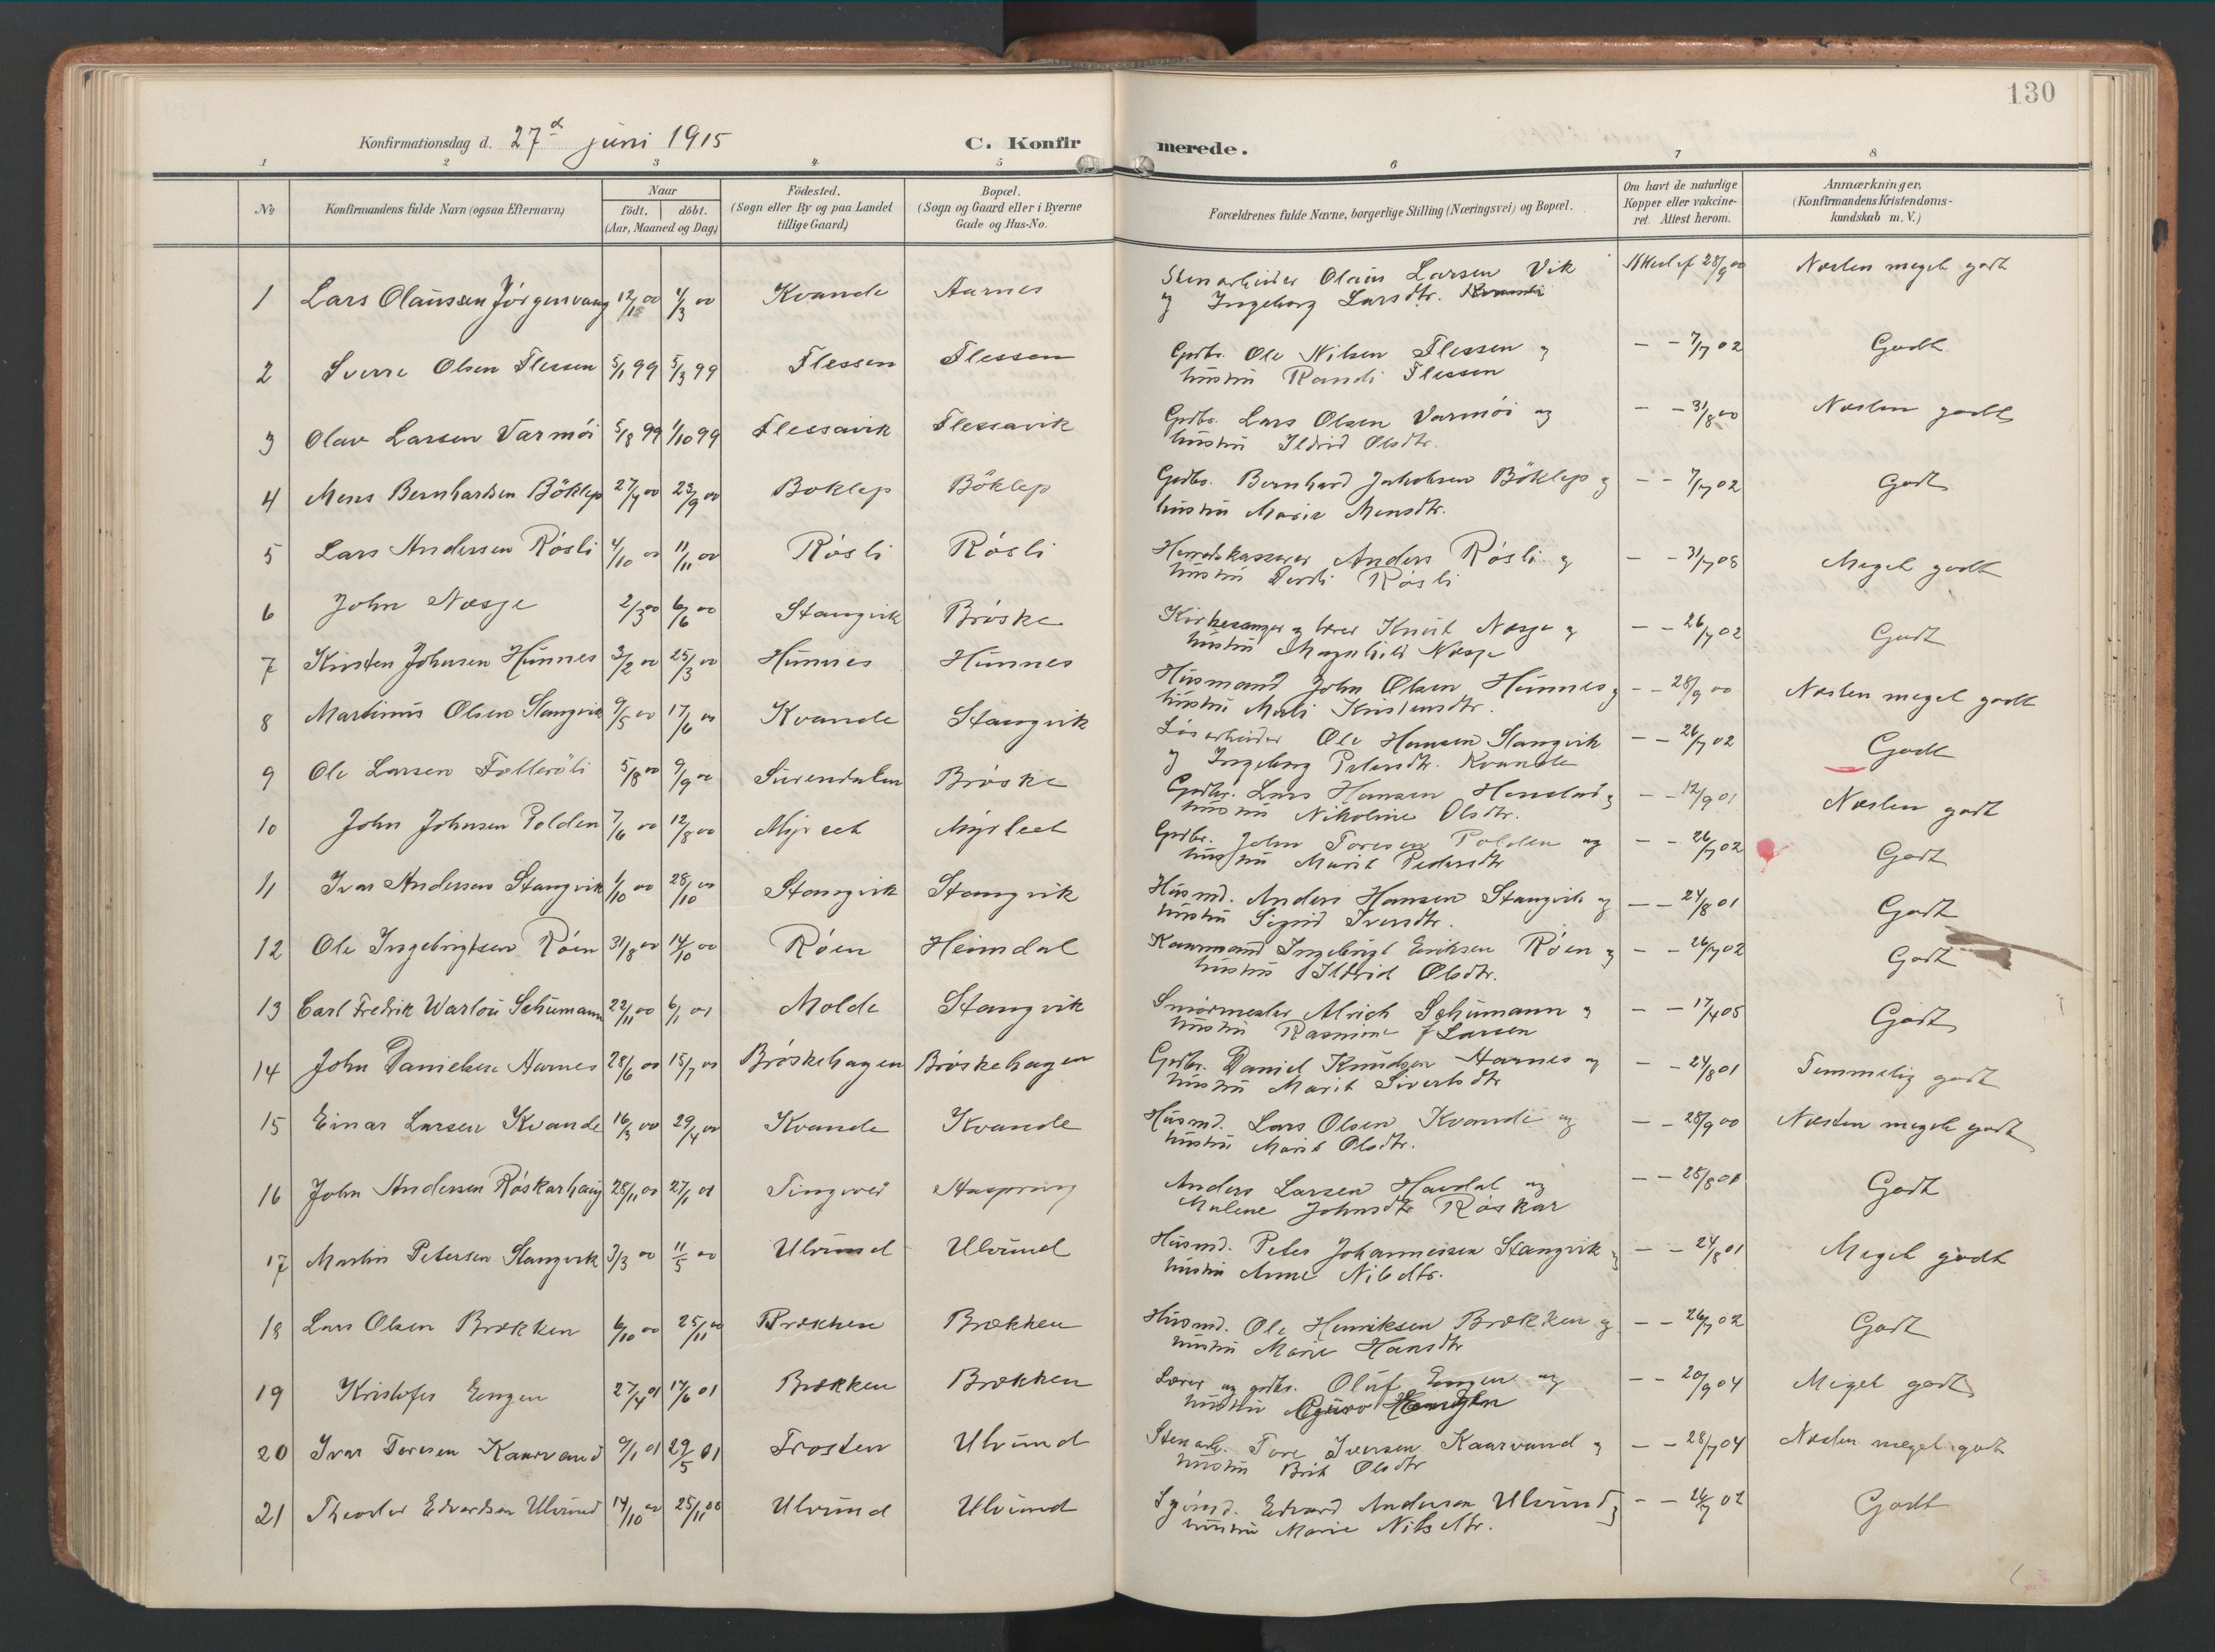 130
Konfirmationsdag d. 27d juni 1915
C. Konfirmerede.
1 2 3 4 5 6 7 8
No
Konfirmandens fulde Navn (ogsaa Efternavn)
Naar
födt. | döbt.
(Aar, Maaned og Dag)
Födested.
(Sogn eller By og paa Landet
tillige Gaard)
Bopæl.
(Sogn og Gaard eller i Byerne
Gade og Hus-No.
Forældrenes fulde Navne, borgerlige Stilling (Næringsvei) og Bopæl.
Om havt de naturlige
Kopper eller vakcine-
ret. Attest herom.
Anmærkninger.
(Konfirmandens Kristendoms-
kundskab m. V.)
1 Lars Olaussen Jörgensvaag 12/1 00 4/3 00 Kvande Aarnes Stenarbeider Olaus Larsen Vik 28/9 00 Næsten meget godt
og Ingeborg Larsdtr.
2 Sverre Olsen Flessen 5/1 99 5/3 99 Flessen Flessen Grdbr. Ole Nilsen Flessen og - - 7/7 02 Godt
hustru Randi Flessen
3 Olav Larsen Varmöi 5/8 99 1/10 99 Flessavik Flessavik Grdbr. Lars Olsen Varmöi og - - 31/8 00 Næsten godt
hustru Ildrid Olsdtr.
4 Mons Bernhardsen Böklep 27/7 00 23/9 00 Boklep Böklep Grdbr. Bernhard Jakobsen Böklep og - - 7/7 02 Godt
hustru Marie Monsdtr.
5 Lars Andersen Rösli 4/10 00 11/11 00 Rösli Rösli Herredskasserer Anders Rösli og - - 31/7 08 Meget godt
hustru Rösli
6 John Næsje 2/3 00 6/6 00 Stangvik Bröske Kirkesanger og lærer Knut Næsje og - - 26/7 02 Godt
hustru Magnhild Næsje
7 Kristen Johnsen Hunnes 3/2 00 25/3 00 Hunnes Hunnes Husmand John Olsen Hunnes og - - 28/9 00 Næsten meget godt
hustru Mali Kristensdtr.
8 Martinus Olsen Stangvik 9/5 00 17/6 00 Kvande Stangvik Lösarbeider Ole Hansen Stangvik - - 26/7 02 Godt
og Ingeborg Pedersdtr. Kvande
9 Ole Larsen Falleröli 5/8 00 9/9 00 Surendalen Bröske Grdbr. Lars Hansen og - - 12/9 01 Næsten godt
hustru Nikoline Olsdtr.
10 John Johnsen Polden 7/6 00 12/8 00 Myrset Myrset Grdbr. John Toresen Polden og - - 26/7 02 Godt
hustru Marit Pedersdtr
11 Ivar Andersen Stangvik 1/10 00 28/10 00 Stangvik Stangvik Husmd. Anders Hansen Stangvik og - - 24/8 01 Godt
hustru Sigrid Iversdtr.
12 Ole Ingebrigtsen Röen 31/8 00 14/10 00 Röen Heimdal Kaarmand Ingebrigt Eriksen Röen og - - 26/7 02 Godt
hustru Ildrid Olsdtr.
13 Carl Fredrik Warlou Schumann 22/11 00 6/1 01 Molde Stangvik Smörmester Alrich Schumann og - - 17/4 05 Godt
hustru Rasmine f Larsen
14 John Danielsen Aarnes 28/6 00 15/7 00 Bröskehagen Bröskehagen Grdbr. Daniel Knudsen Aarnes og - - 24/8 01 Temmelig godt
hustru Marit Sivertsdtr
15 Einar Larsen Kvande 16/3 00 29/4 00 Kvande Kvande Husmd. Lars Olsen Kvande og - - 28/9 00 Næsten meget godt
hustru Marit Olsdtr.
16 John Andersen Röskarhaug 28/11 00 27/1 01 Tingvoll Aasprong Anders Larsen Havdal og - - 25/8 01 Godt
Malene Johnsdtr Röskar
17 Martin Petersen Stangvik 3/3 00 11/5 00 Ulvund Ulvund Husmd. Peter Johannessen Stangvik og - - 24/8 01 Meget godt
hustru Anne Nilsdtr.
18 Lars Olsen Brækken 6/10 00 25/11 00 Brækken Brækken Husmd. Ole Henriksen Brækken og - - 26/7 02 Godt
hustru Marie Hansdtr
19 Kristofer Engen 27/4 01 17/6 01 Brækken Brækken Lærer og grdbr. Oluf Engen og - - 20/9 04 Meget godt
hustru Guro Engen
20 Ivar Toresen Kaarvand 9/1 01 29/5 01 Frosten Ulvund Stenarb. Tore Iversen Kaarvand og - - 28/7 04 Næsten meget godt
hustru Brit Olsdtr
21 Theodor Edvardsen Ulvund 14/10 00 25/11 00 Ulvund Ulvund Edvard Andersen Ulvund og - - 26/7 02 Godt
hustru Marie Nilsdtr.